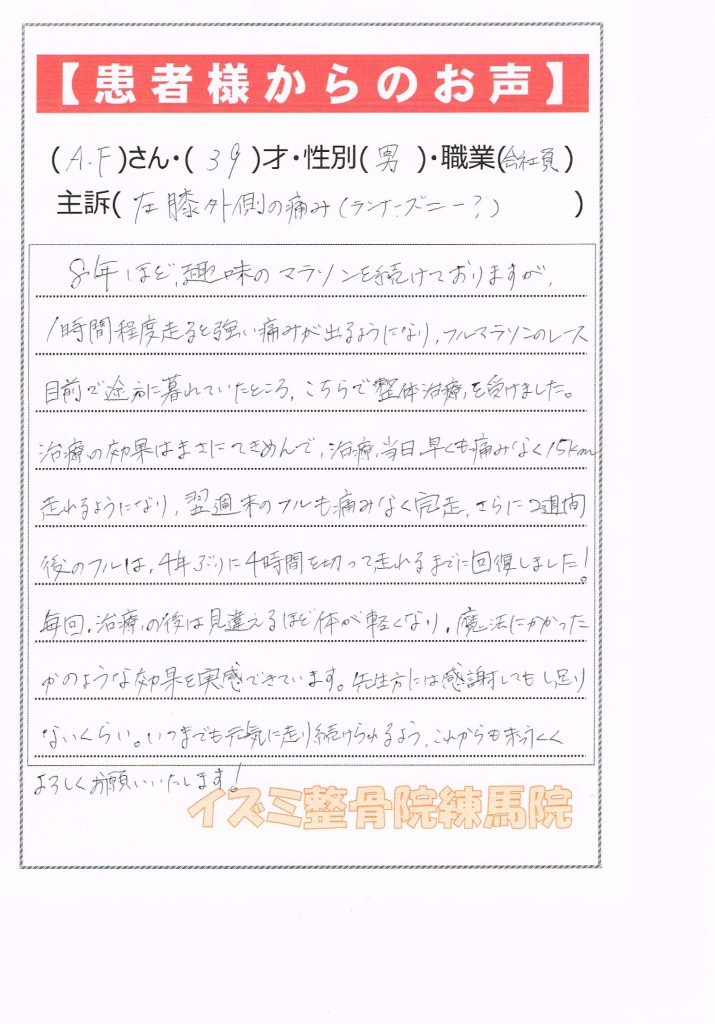 【患者様からのお声】
(A.F)さん・(39)才・性別(男)・職業(会社員)
主訴(左膝外側の痛み(ランナーズニー?))
8年ほど、趣味のマラソンを続けておりますが、
1時間程度走ると強い痛みが出るようになり、フルマラソンのレース
目前で途方に暮れていたところ、こちらで整体治療を受けました。
治療の効果はまさにてきめんで、治療当日、早くも痛みなく15km
走れるようになり、翌週末のフルも痛みなく完走、さらに2週間
後のフルは、4年ぶりに4時間を切って走れるまでに回復しました!
毎回、治療の後は見違えるほど体が軽くなり、魔法にかかった
かのような効果を実感できています。先生方には感謝してもし足り
ないくらい。いつまでも元気に走り続けられるよう、これからも末永く
よろしくお願いいたします!
イズミ整骨院練馬院